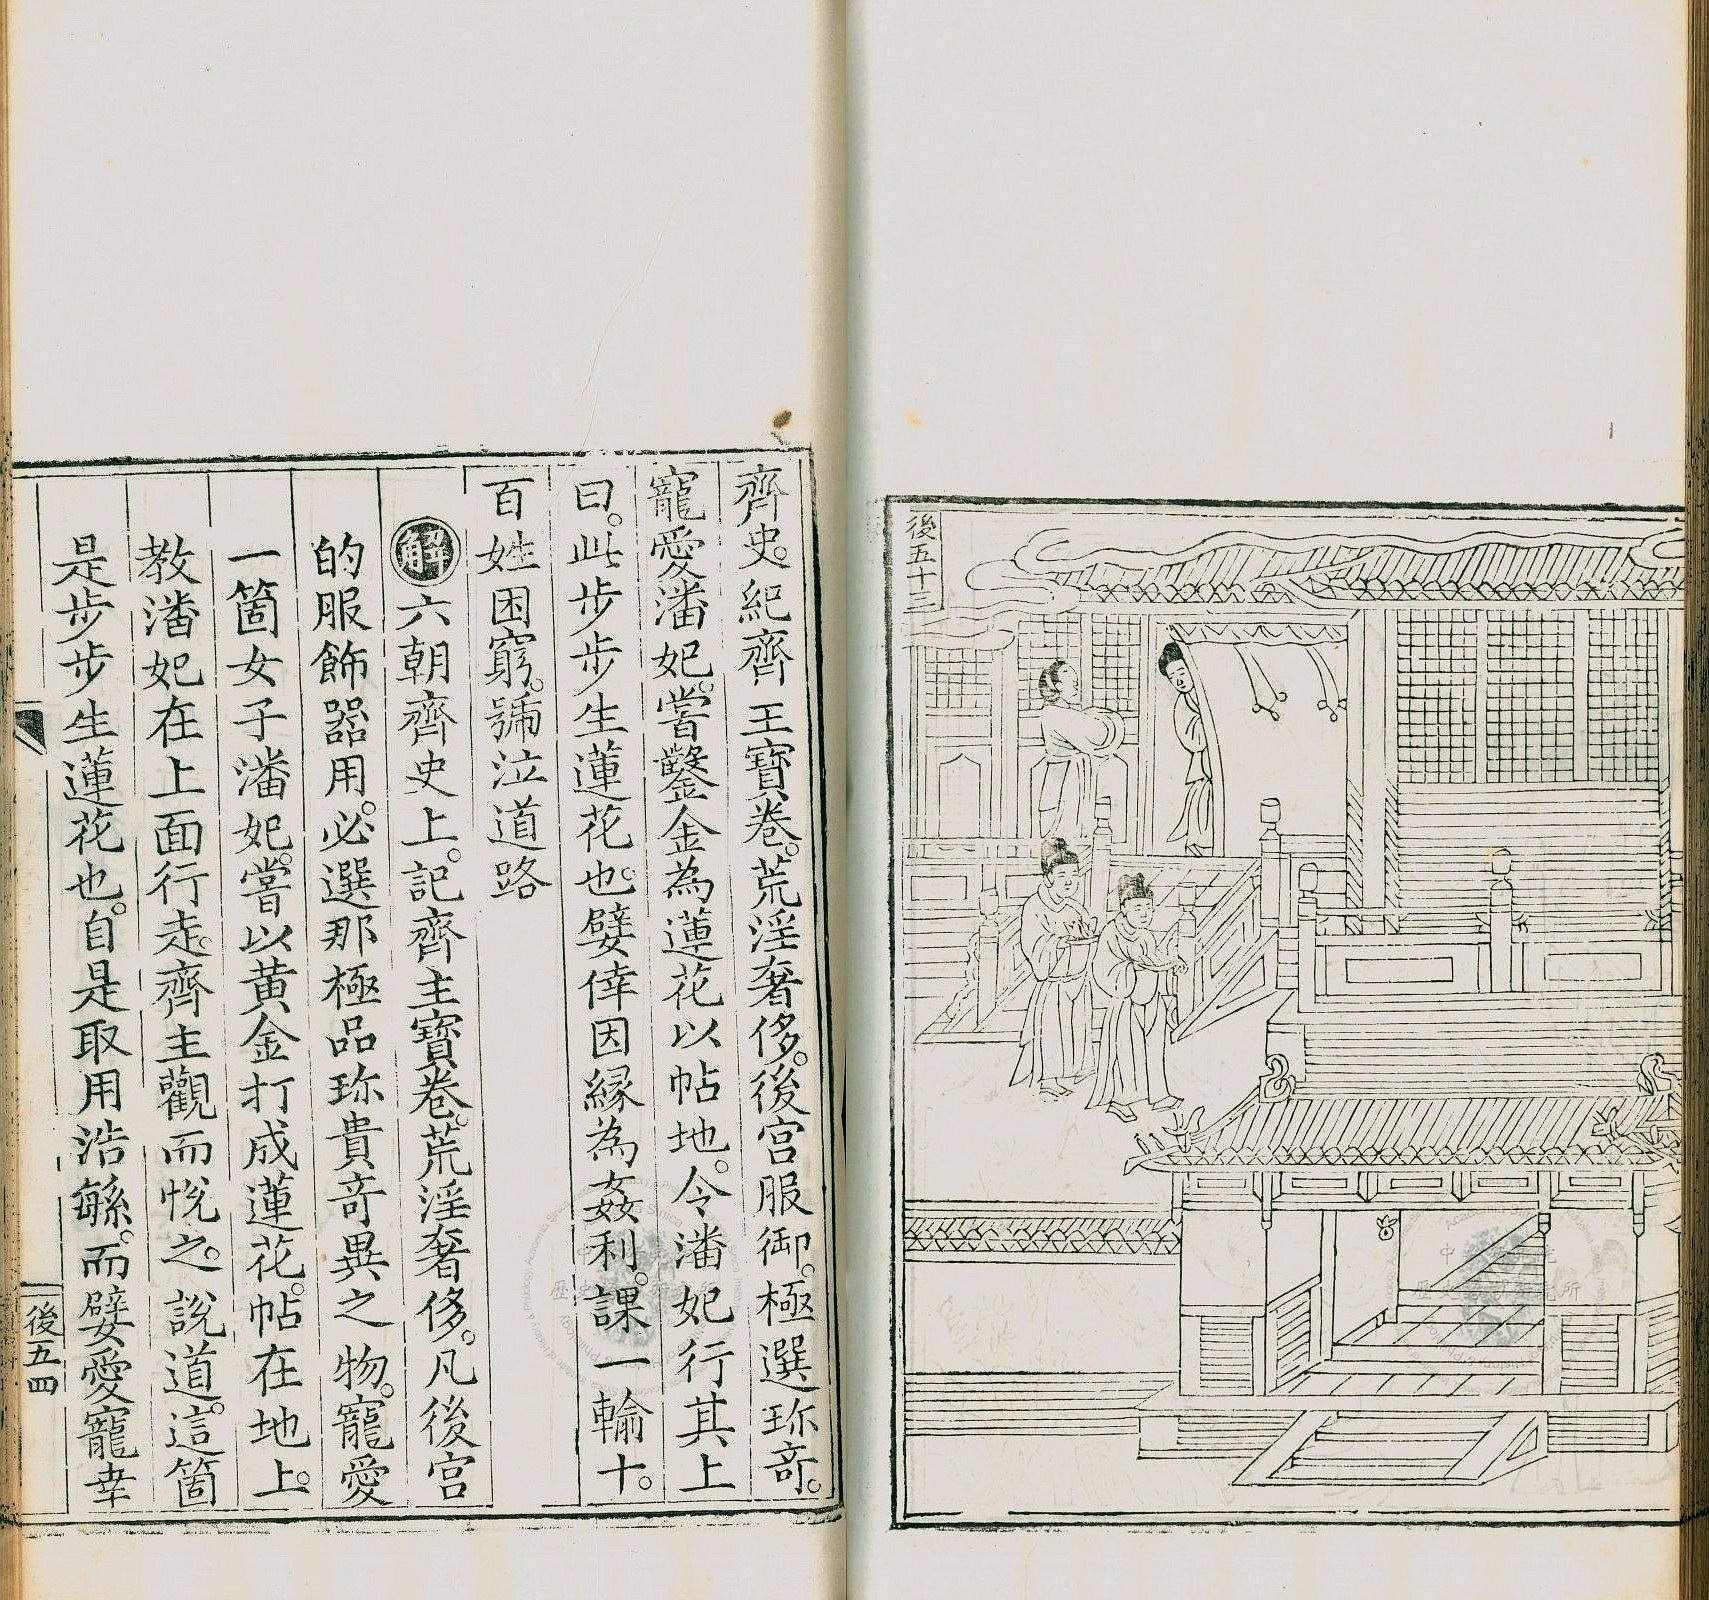 後五十三
齊史。紀齊王寶卷。荒淫奢侈。後宮服御。極選珎奇。
寵愛潘妃。嘗鑿金為蓮花以帖地。令潘妃行其上
曰。此步步生蓮花也。嬖倖因緣為姦利。課一輸十。
百姓困窮。號泣道路
解六朝齊史上。記齊主寶卷。荒淫奢侈。凡後宮
的服飾器用。必選那極品珎貴奇異之物。寵愛
一箇女子潘妃。嘗以黃金打成蓮花。帖在地上。
教潘妃在上面行走。齊主觀而悅之。說道。這箇
是步步生蓮花也。自是取用浩繁。而嬖愛寵幸
後五四